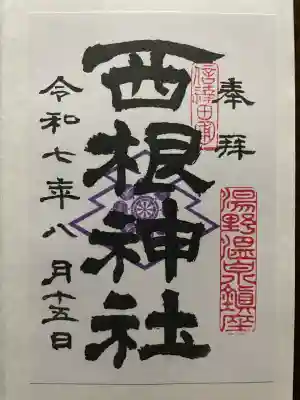 奉拝
湯野温泉鎮座
西根神社
令和七年八月十五日